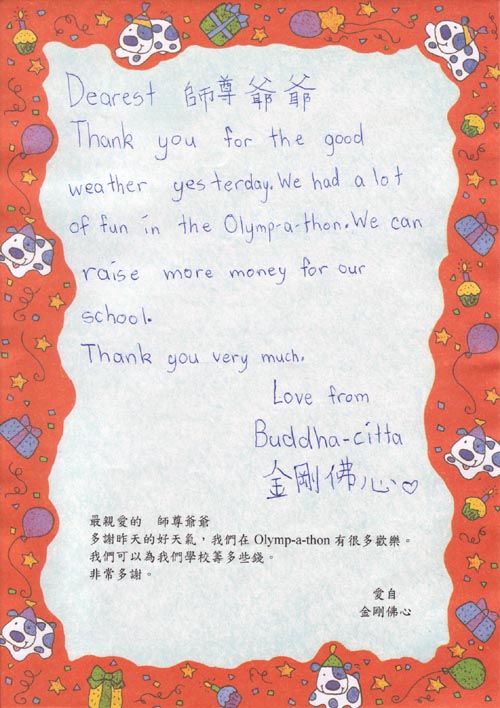 Dearest 師尊爺爺
Thank you for the good
weather yesterday. We had a lot
of fun in the Olymp-a-thon. We can
raise more money for our
school.
Thank you very much.
Love from
Buddha-citta
金剛佛心♡
最親愛的 師尊爺爺
多謝昨天的好天氣，我們在 Olymp-a-thon 有很多歡樂。
我們可以為我們學校籌多些錢。
非常多謝。
愛自
金剛佛心